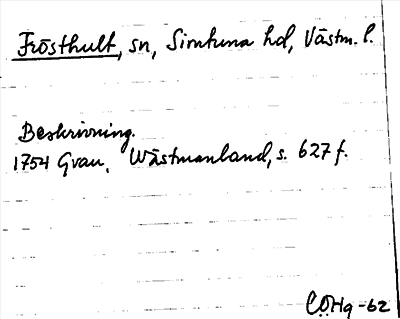 Frösthult, sn, Simtuna hd, Västm. l.
Beskrivning.
1754 Grau, Wästmanland, s. 627 f.
CÖHg -62